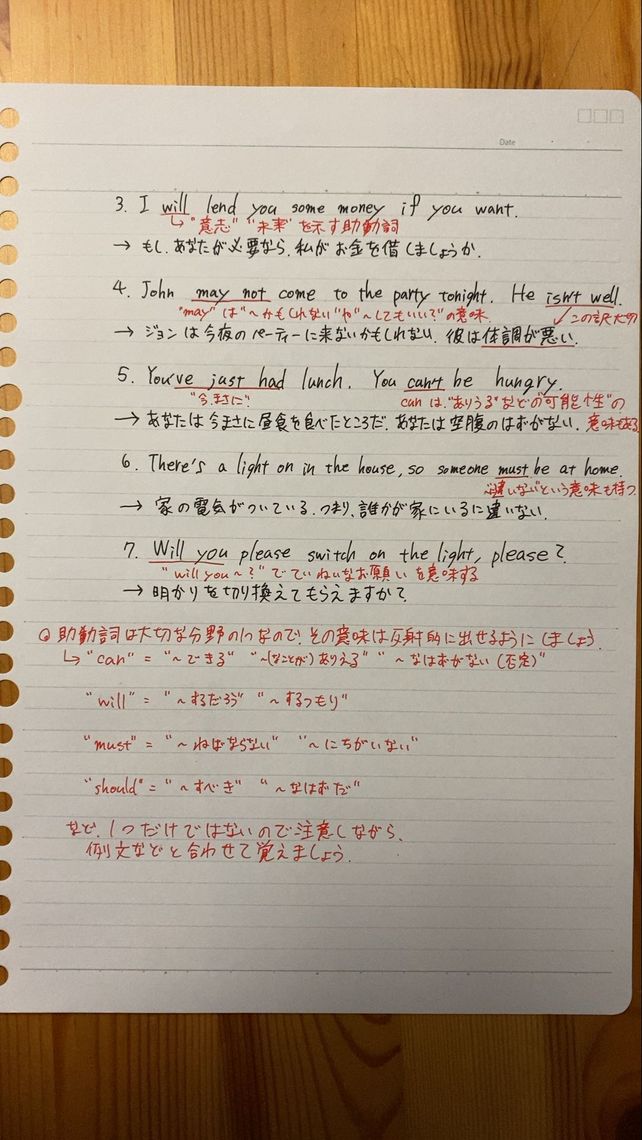 Date
3. I will lend you some money if you want.
↳ "意志" "未来" を示す助動詞
→ もし、あなたが必要なら、私がお金を借しましょうか.
4. John may not come to the party tonight. He isn't well.
"may" は "~かもしれない" や "~してもいい?" の意味. この訳大切
→ ジョンは今夜のパーティーに来ないかもしれない. 彼は体調が悪い.
5. You've just had lunch. You can't be hungry.
"今、まさに" can は、"ありうる" などの "可能性" の
→ あなたは今まさに昼食を食べたところだ. あなたは空腹のはずがない. 意味もある
6. There's a light on in the house, so someone must be at home.
"違いない" という意味も持つ
→ 家の電気がついている. つまり、誰かが家にいるに違いない.
7. Will you please switch on the light, please?
"will you ~?" でていねいなお願いを意味する
→ 明かりを切り換えてもらえますか?
助動詞は大切な分野の1つなので、その意味は反射的に出せるようにしましょう.
↳ "can" = "~できる" "~(なことが)ありえる" "~なはずがない (否定)"
"will" = "~するだろう" "~するつもり"
"must" = "~ねばならない" "~にちがいない"
"should" = "~すべき" "~なはずだ"
など、1つだけではないので注意しながら、
例文などと合わせて覚えましょう.